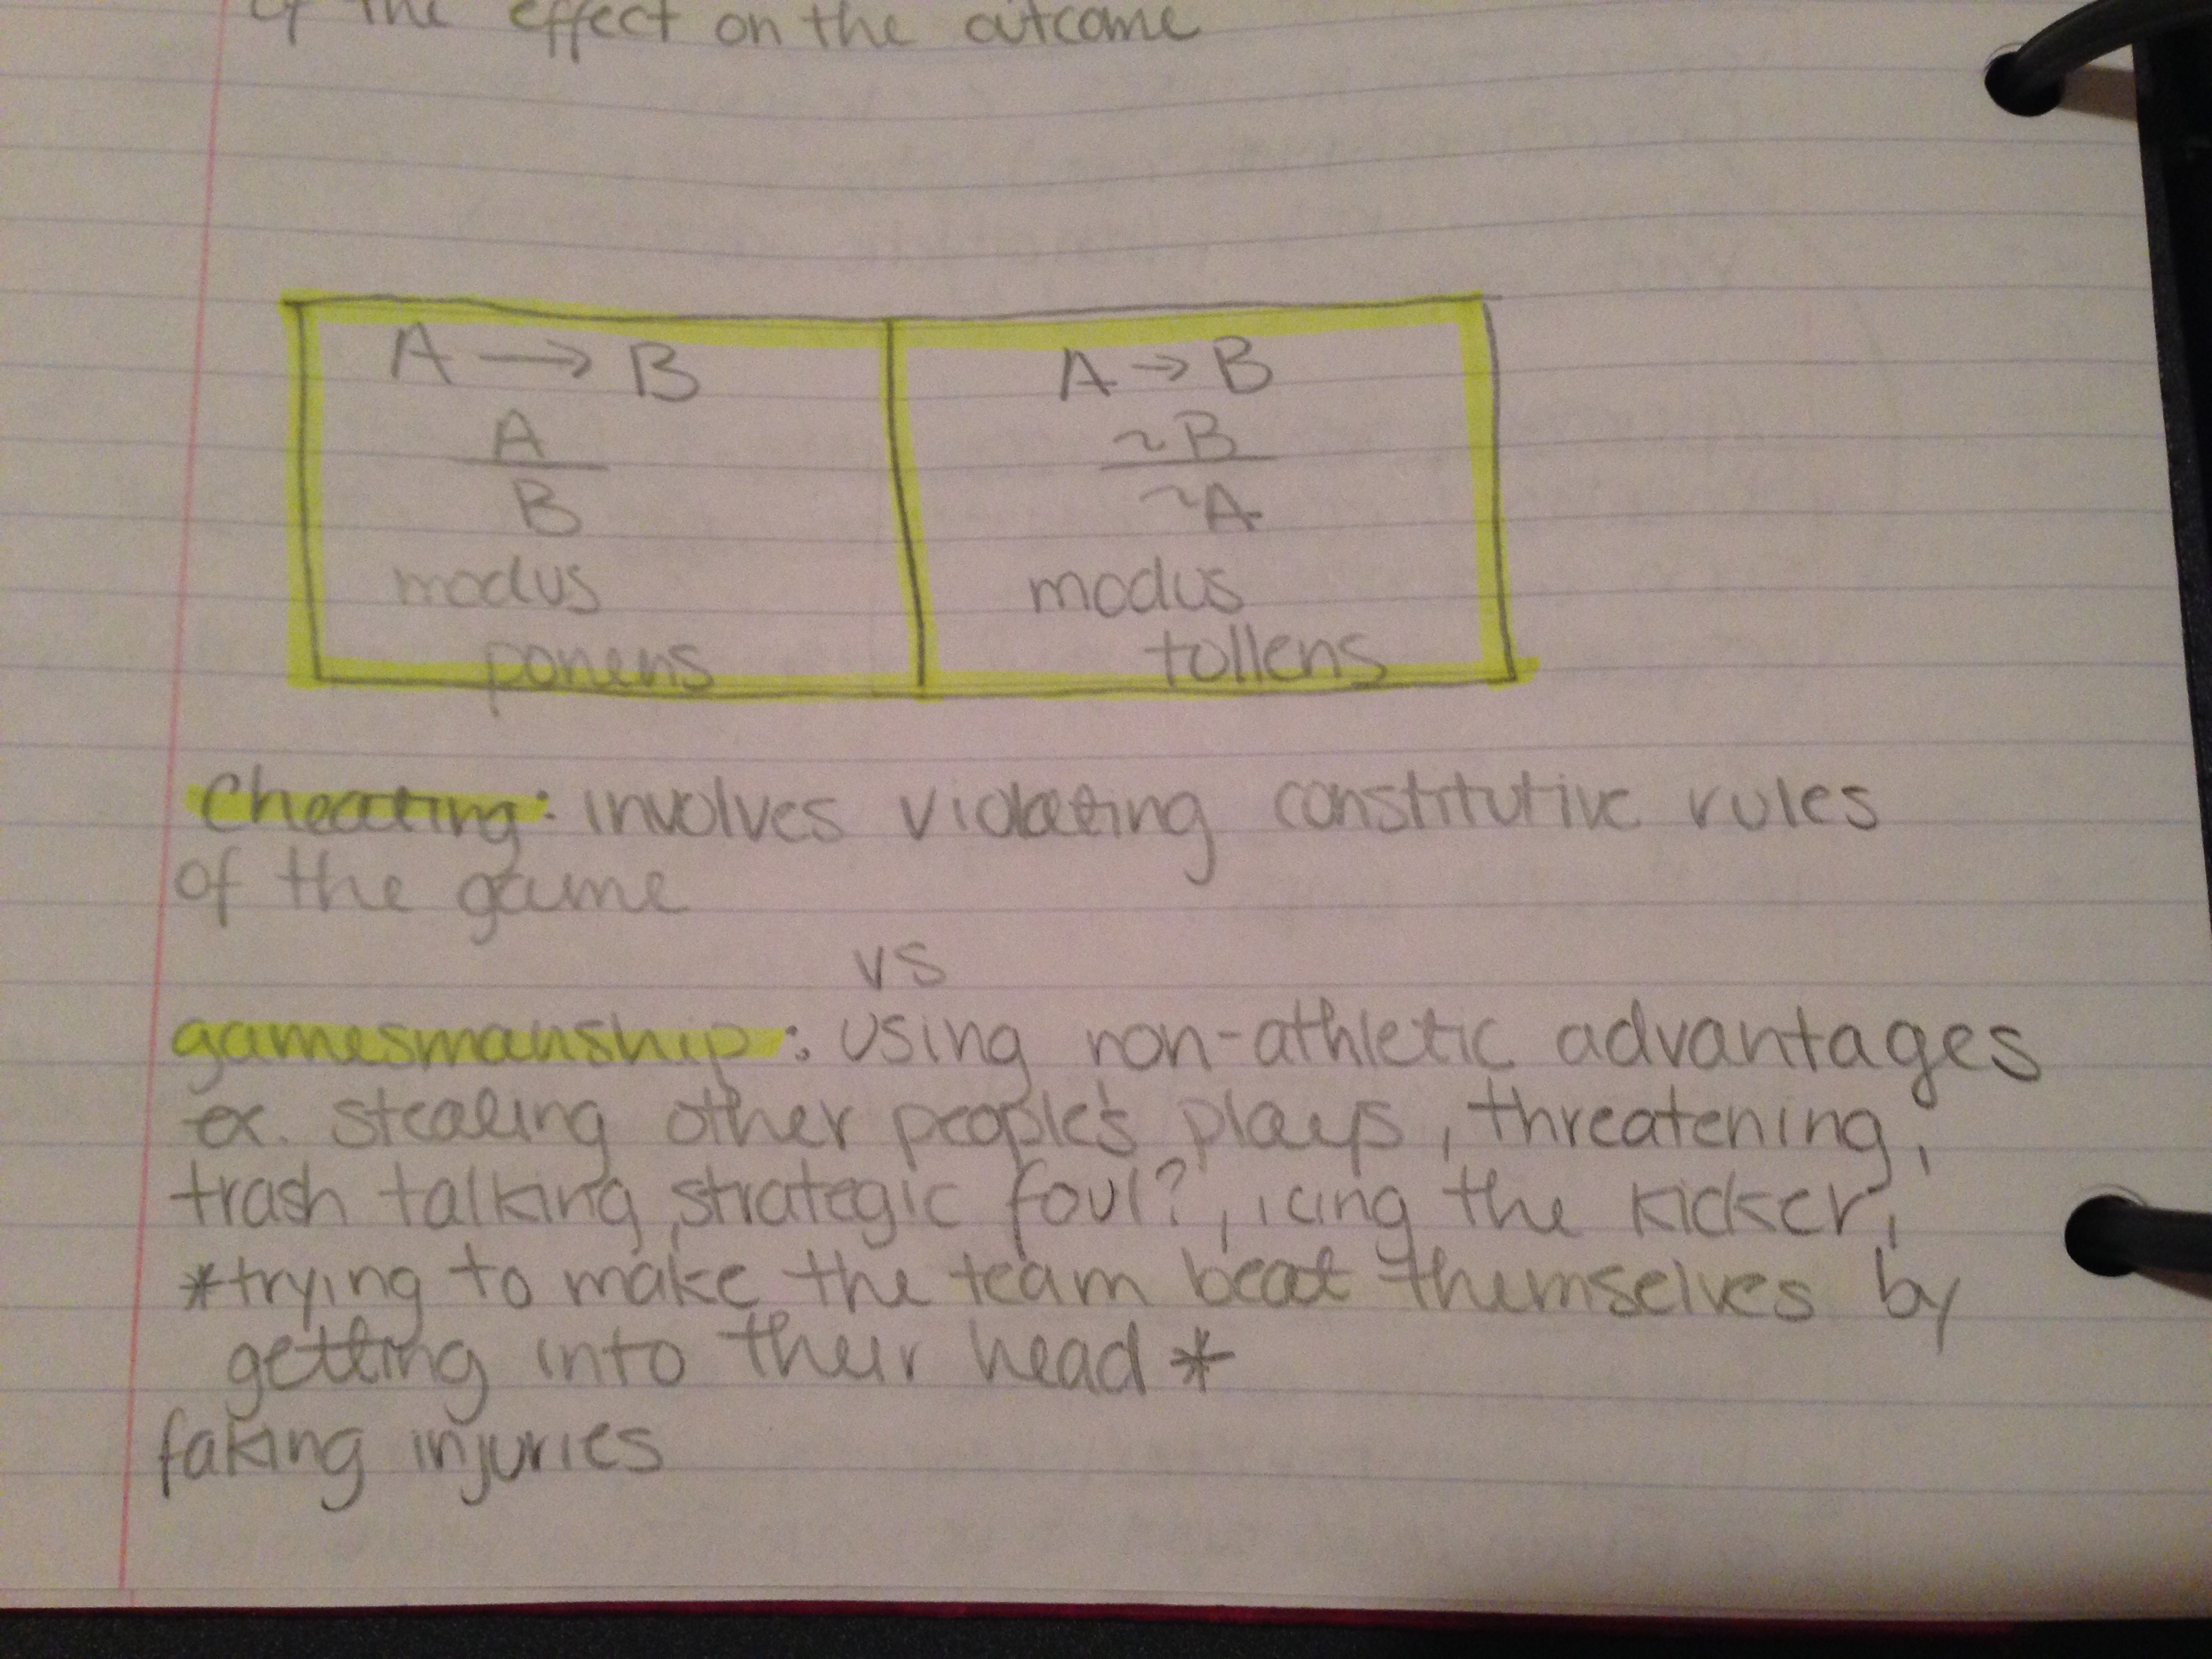 of the effect on the outcome
A → B
A
B
modus
ponens
A → B
~B
~A
modus
tollens
Cheating: involves violating constitutive rules
of the game
vs
gamesmanship: using non-athletic advantages
ex. stealing other people's plays, threatening,
trash talking, strategic foul?, icing the kicker,
*trying to make the team beat themselves by
getting into their head*
faking injuries